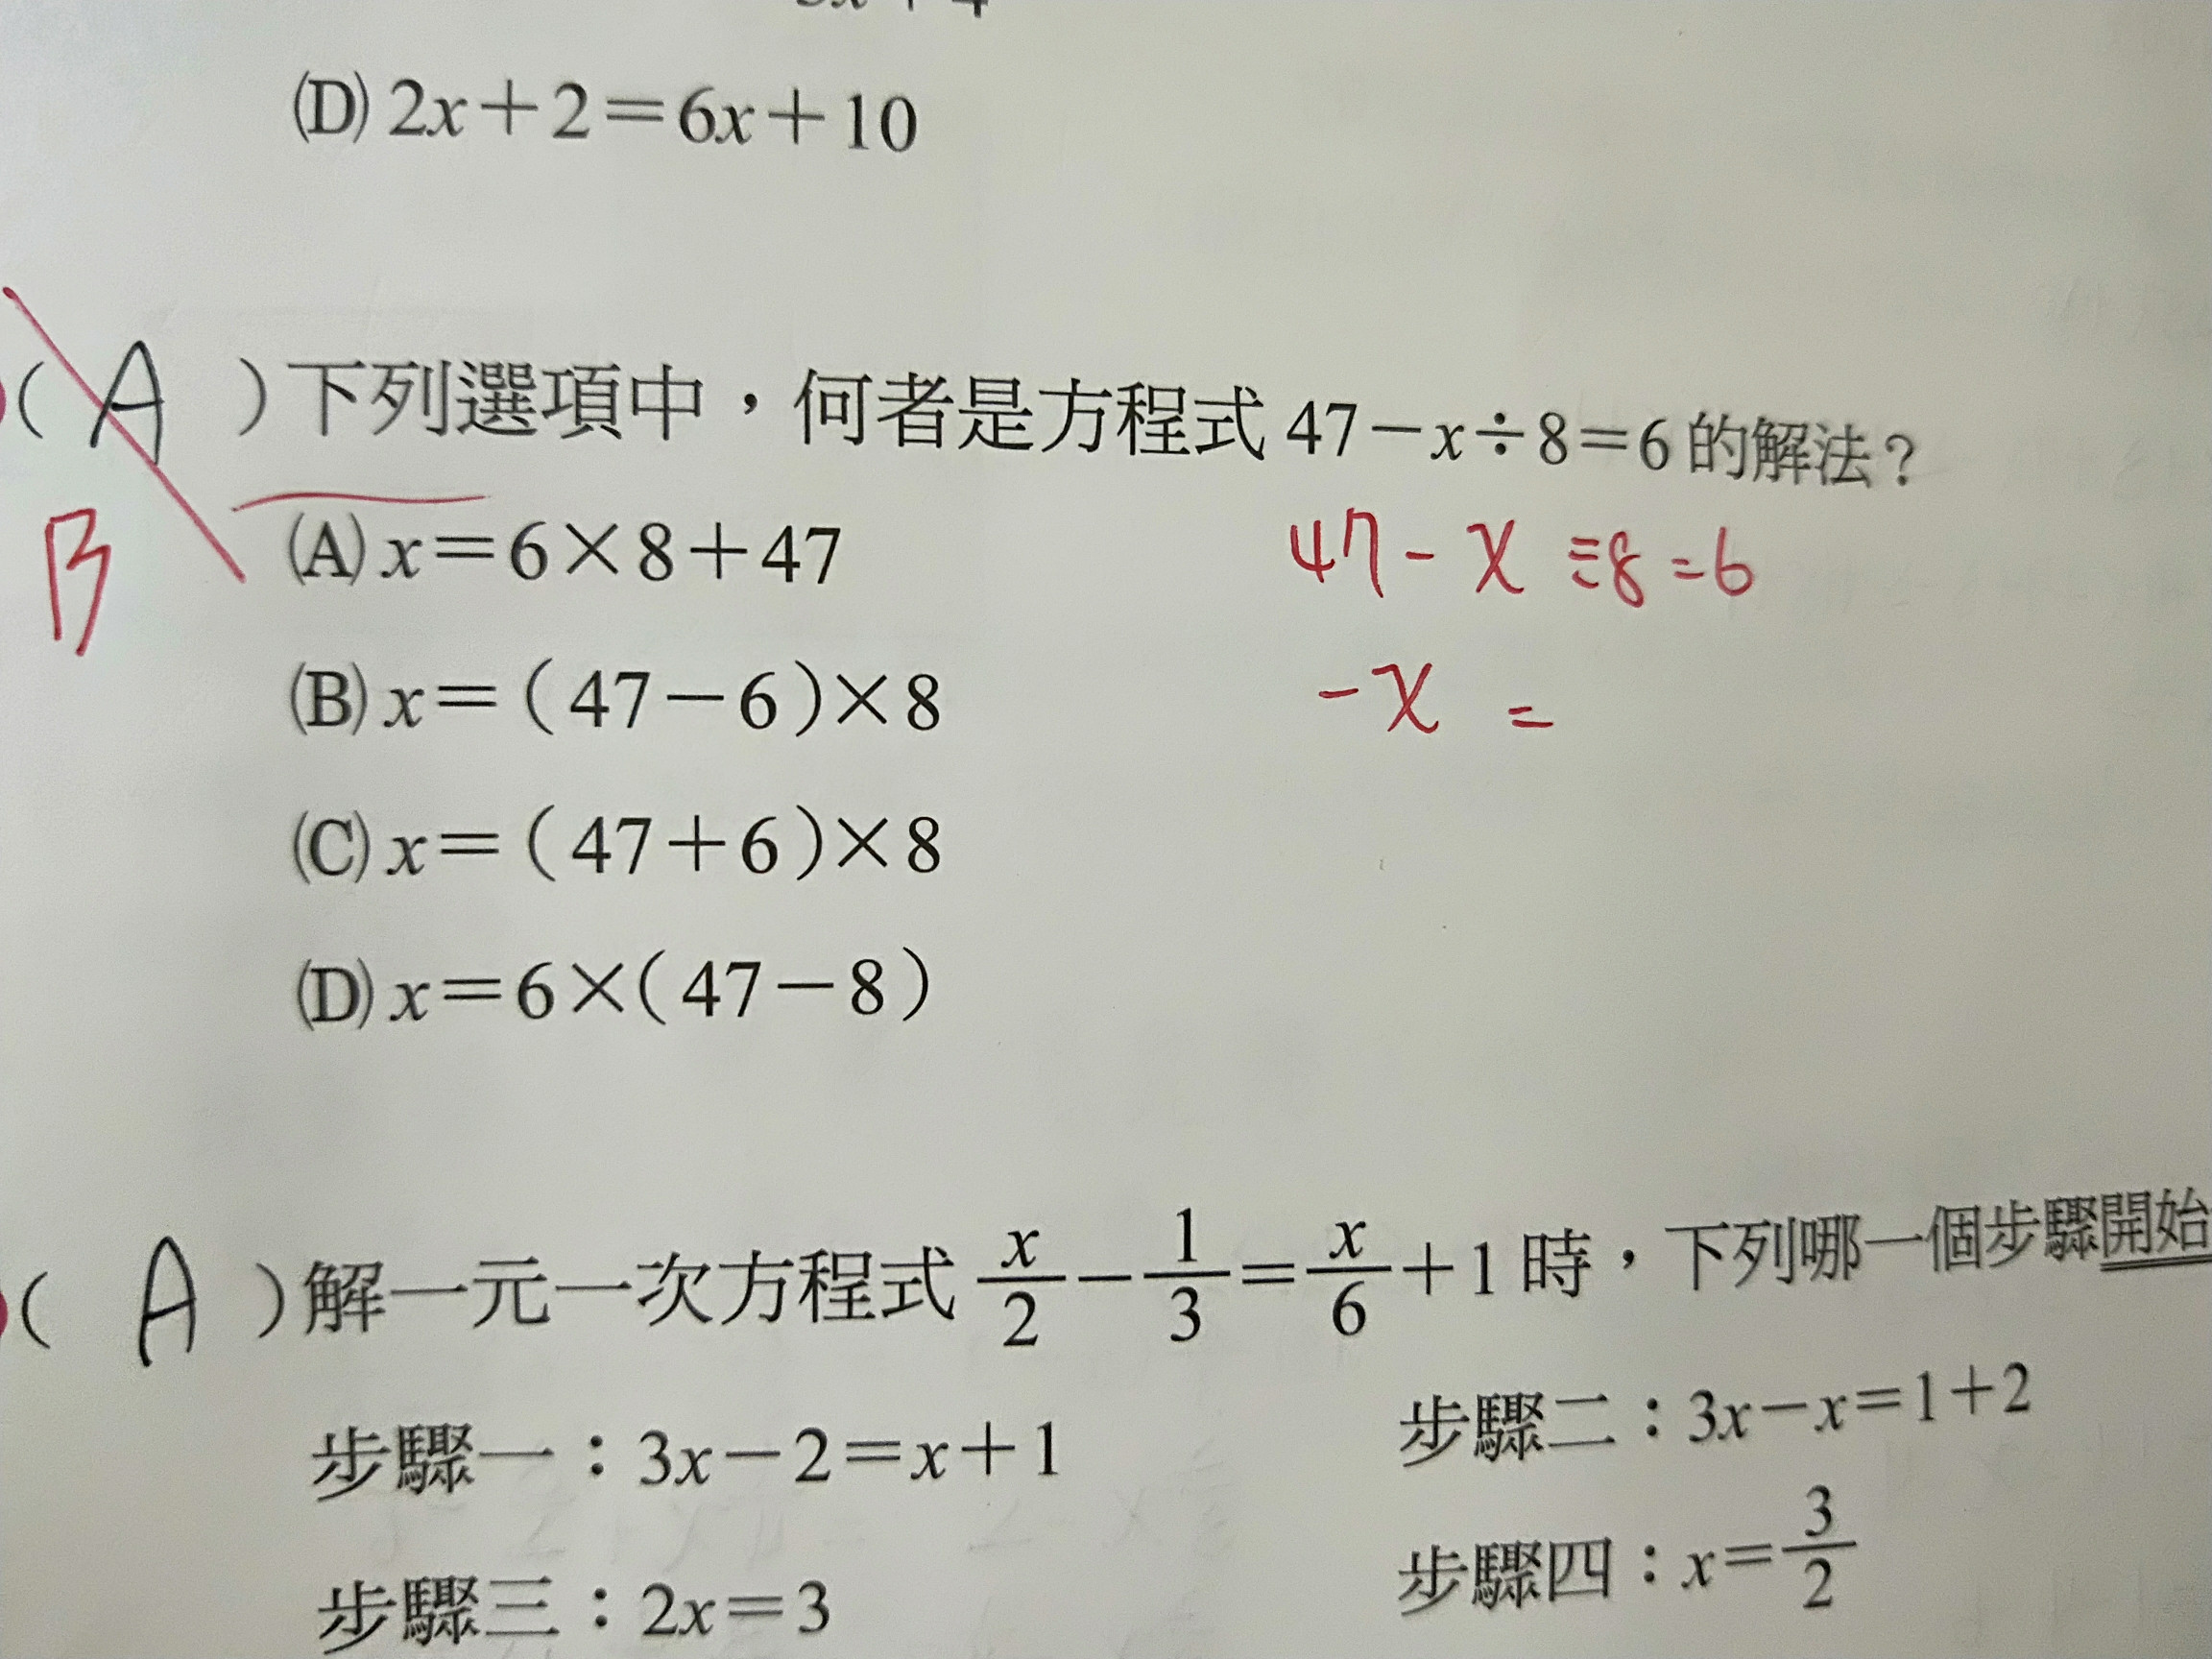 (D) 2x+2=6x+10
( A ) 下列選項中，何者是方程式 47－x÷8=6 的解法？
B
(A) x=6×8+47
47 - x ÷8 = 6
(B) x=(47－6)×8
-x =
(C) x=(47+6)×8
(D) x=6×(47－8)
( A ) 解一元一次方程式 x/2－1/3=x/6+1 時，下列哪一個步驟開始
步驟一：3x－2=x+1
步驟二：3x－x=1+2
步驟三：2x=3
步驟四：x=3/2